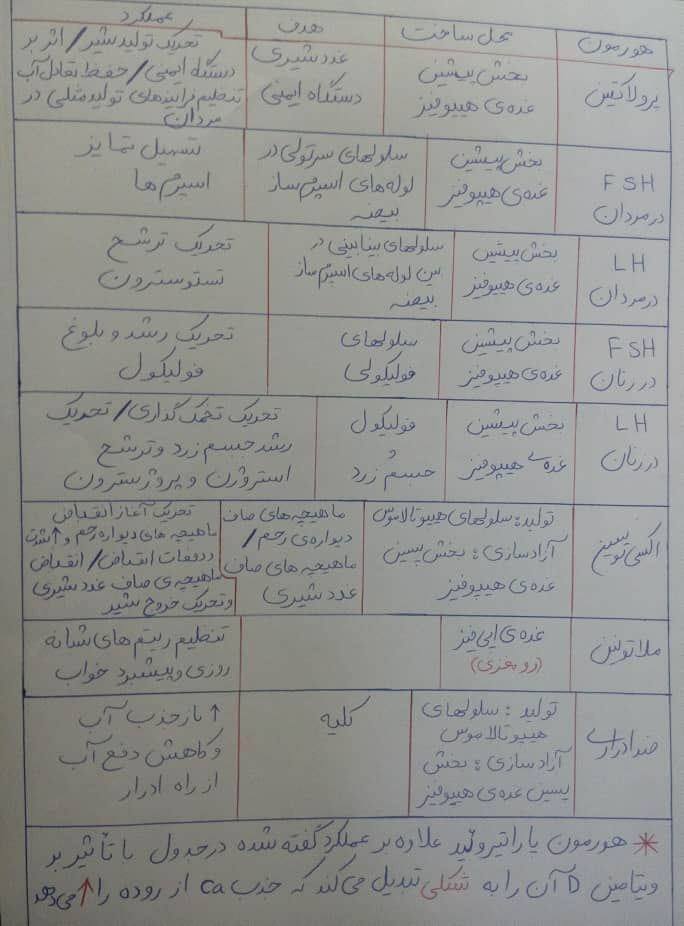 هورمون محل ساخت هدف عملکرد
پرولاکتین
بخش پیشین
غده ی هیپوفیز
غدد شیری
دستگاه ایمنی
تحریک تولید شیر / اثر بر
دستگاه ایمنی / حفظ تعادل آب
تنظیم فرایندهای تولید مثلی در
مردان
FSH
در مردان
بخش پیشین
غده ی هیپوفیز
سلولهای سرتولی در
لوله های اسپرم ساز
بیضه
تسهیل تمایز
اسپرم ها
LH
در مردان
بخش پیشین
غده ی هیپوفیز
سلولهای بینابینی در
بین لوله های اسپرم ساز
بیضه
تحریک ترشح
تستوسترون
FSH
در زنان
بخش پیشین
غده ی هیپوفیز
سلولهای
فولیکولی
تحریک رشد و بلوغ
فولیکول
LH
در زنان
بخش پیشین
غده ی هیپوفیز
فولیکول
و
جسم زرد
تحریک تخمک گذاری / تحریک
رشد جسم زرد و ترشح
استروژن و پروژسترون
اکسی توسین
تولید: سلولهای هیپوتالاموس
آزادسازی: بخش پسین
غده ی هیپوفیز
ماهیچه های صاف
دیواره ی رحم /
ماهیچه های صاف
غدد شیری
تحریک آغاز انقباض
ماهیچه های دیواره رحم و ↑ شدت
و دفعات انقباض / انقباض
ماهیچه ی صاف غدد شیری
و تحریک خروج شیر
ملاتونین
غده ی اپی فیز
(رومغزی)
تنظیم ریتم های شبانه
روزی و پیشبرد خواب
ضدادراری
تولید: سلولهای
هیپوتالاموس
آزادسازی: بخش
پسین غده ی هیپوفیز
کلیه
↑ بازجذب آب
و کاهش دفع آب
از راه ادرار
* هورمون پاراتیروئید علاوه بر عملکرد گفته شده در جدول با تأثیر بر
ویتامین D آن را به شکلی تبدیل می کند که جذب Ca از روده را ↑ می دهد